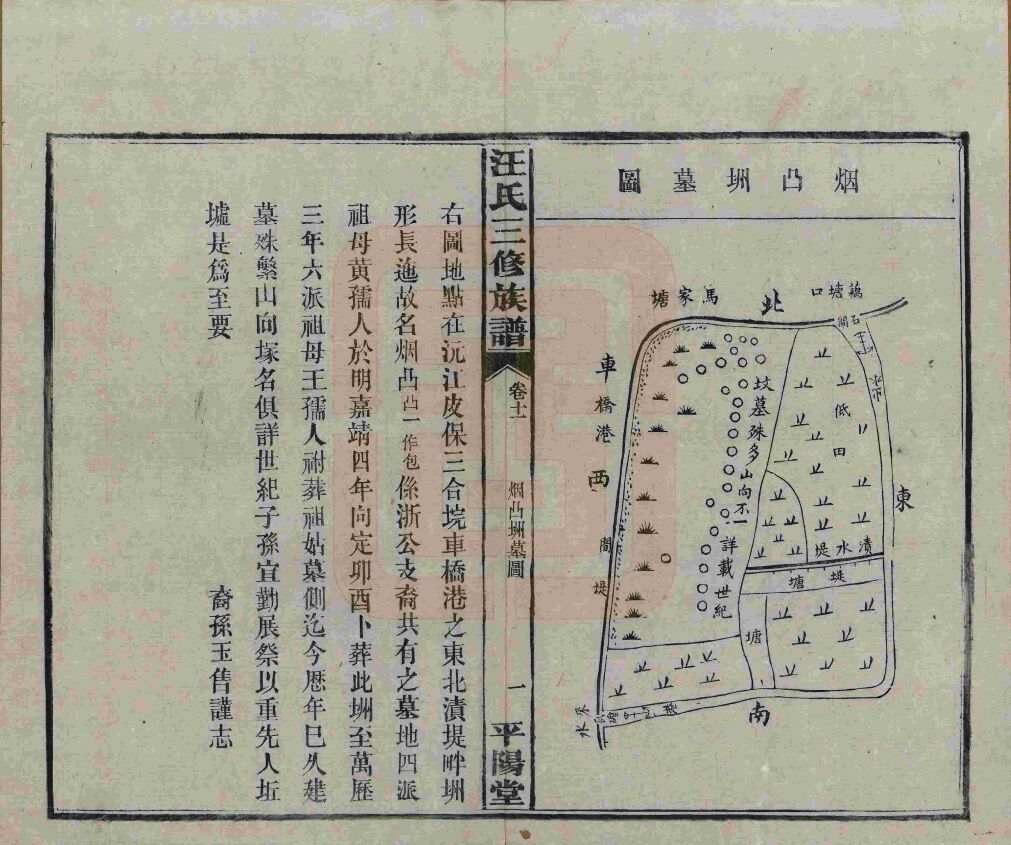 烟凸坿墓圖
北
藕塘口
石閘
馬家塘
車橋港
西
間堤
東
南
坟墓殊多
山向不一
詳載世紀
低田
漬水堤
堤塘
塘
汪氏三修族譜
卷十一
烟凸坿墓圖
一
平陽堂
右圖地點在沅江皮保三合垸車橋港之東北漬堤畔坿
形長迤故名烟凸凸一作包係浙公支裔共有之墓地四派
祖母黄孺人於明嘉靖四年向定卯酉卜葬此坿至萬歷
三年六派祖母王孺人祔葬祖姑墓側迄今歷年已久建
墓殊繁山向塚名俱詳世紀子孫宜勤展祭以重先人坵
墟是爲至要
裔孫玉售謹志